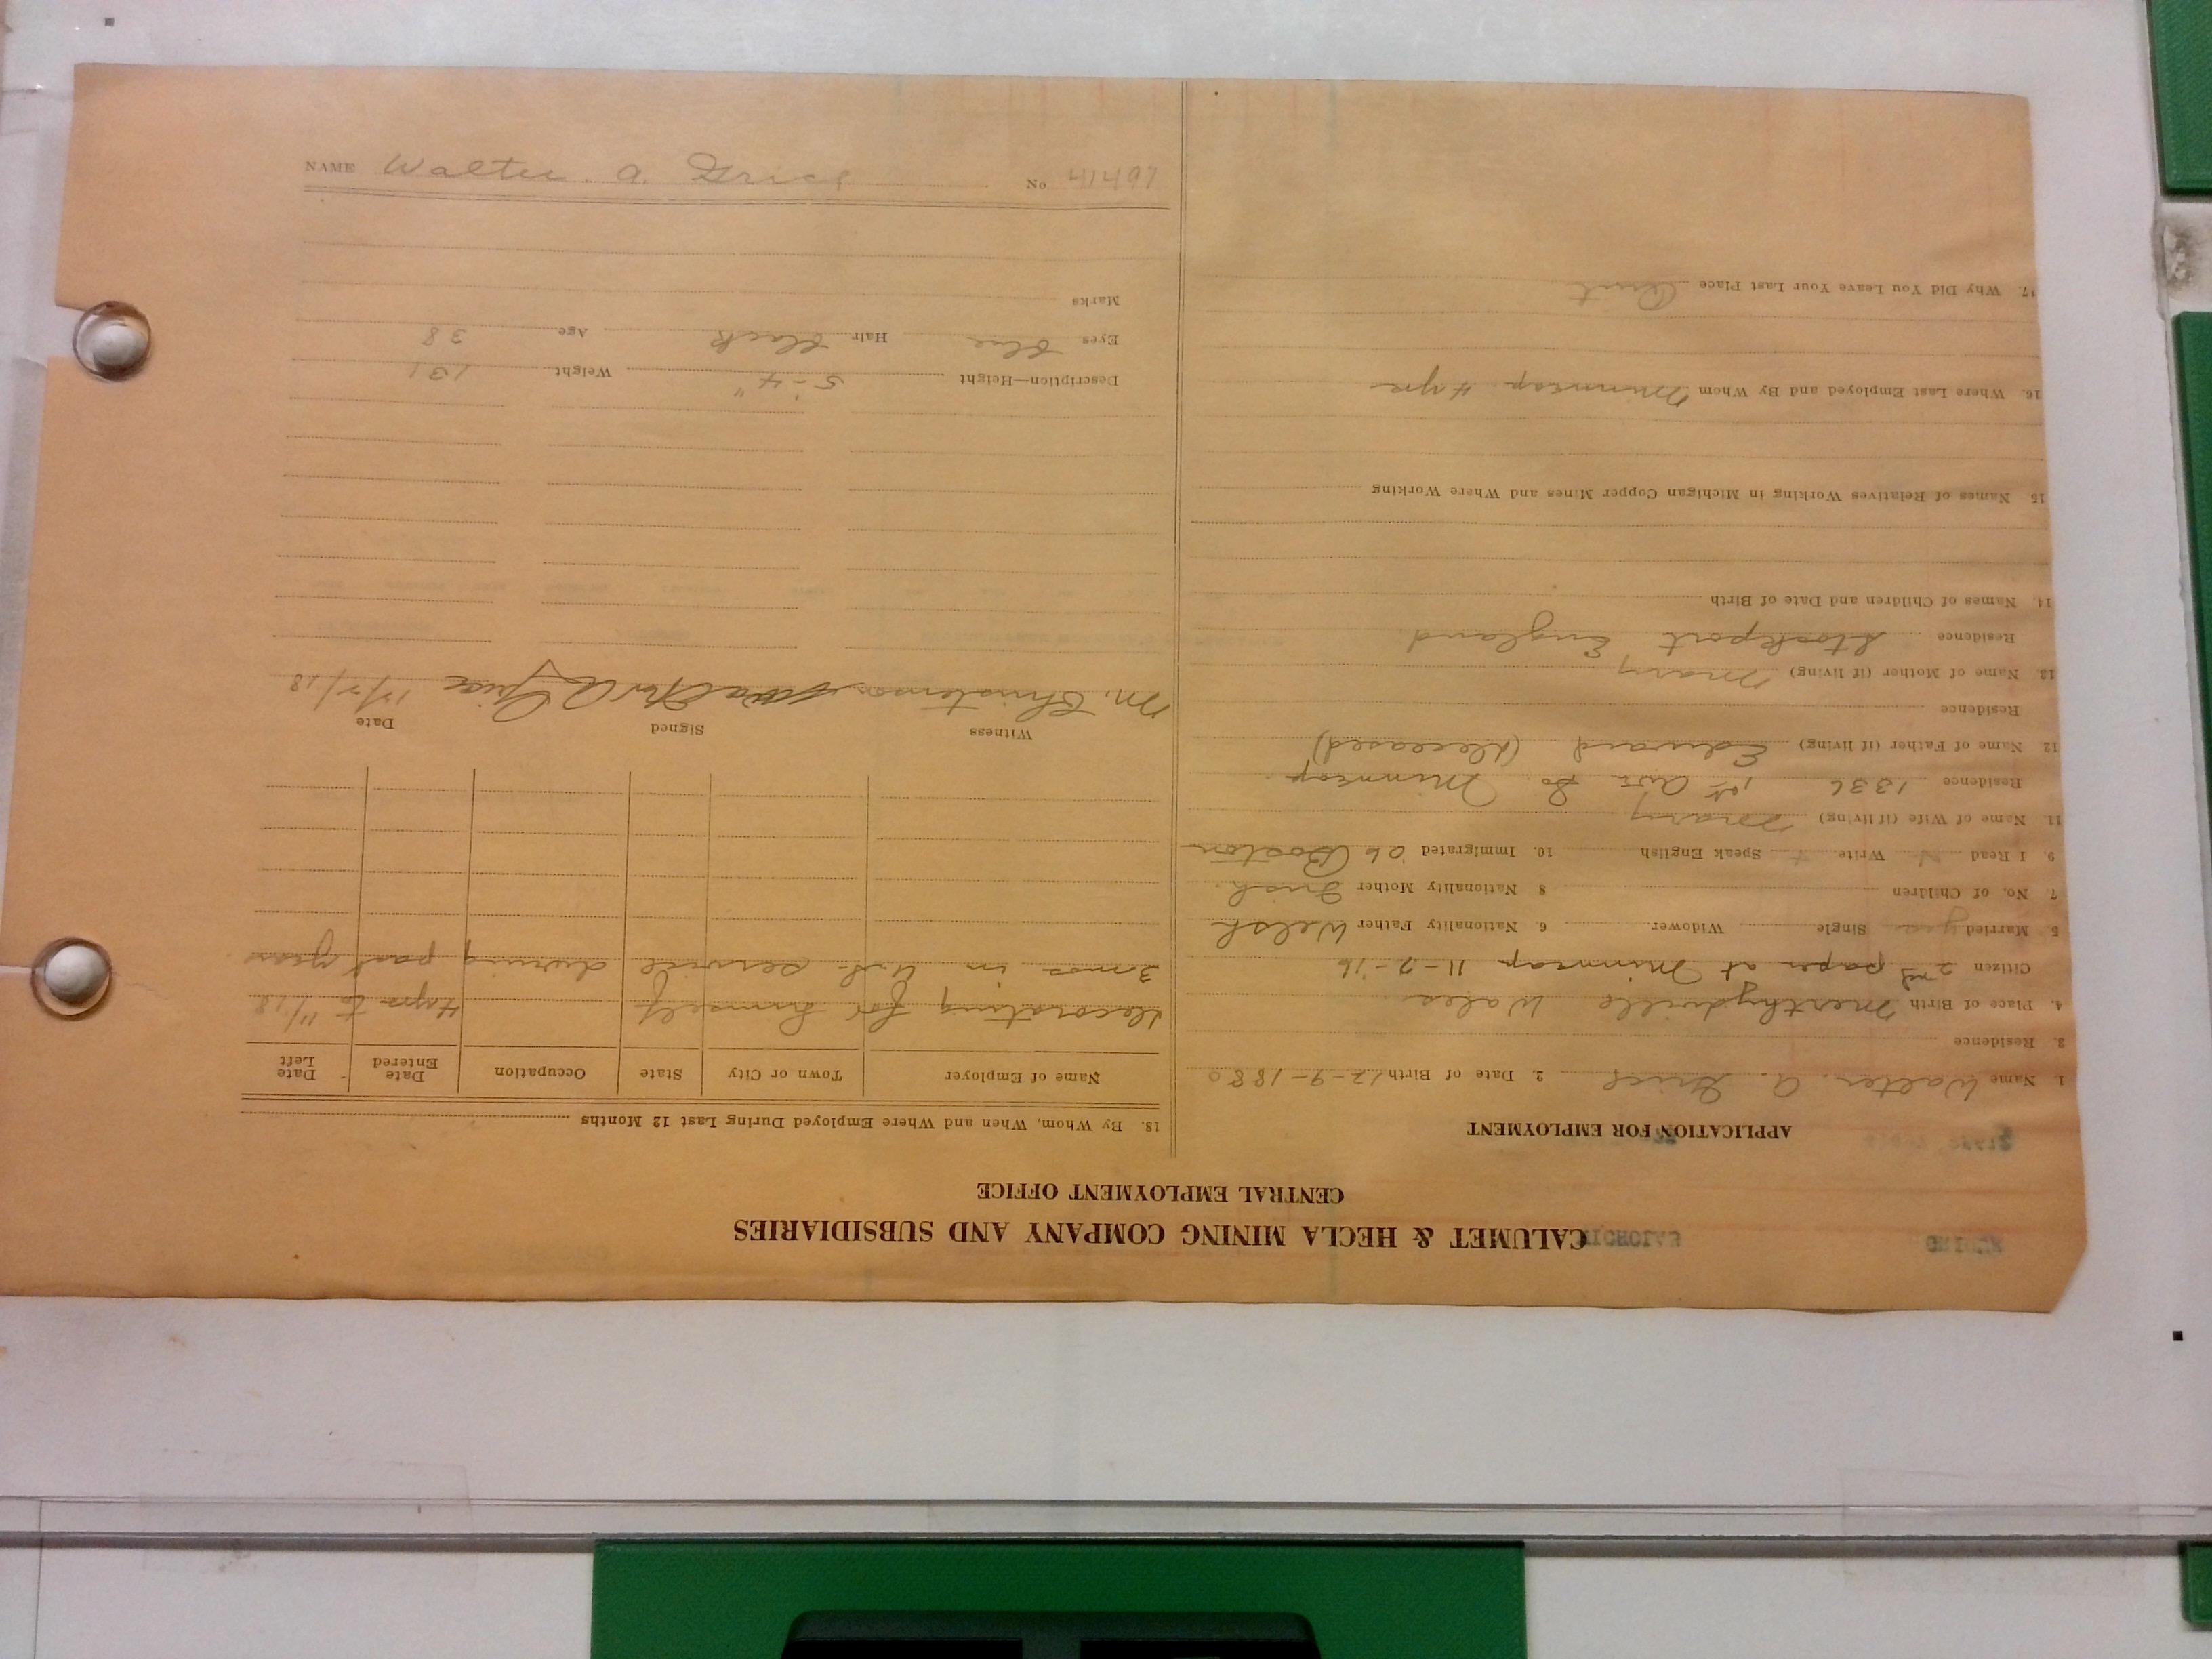 CALUMET & HECLA MINING COMPANY AND SUBSIDIARIES
CENTRAL EMPLOYMENT OFFICE
APPLICATION FOR EMPLOYMENT
1. Name Walter. A. Grice 2. Date of Birth 12-9-1880
3. Residence
4. Place of Birth Merthydville Wales.
Citizen 2nd paper at Minneap 11-2-16
5. Married yes Single Widower 6. Nationality Father Welsh
7. No. of Children 8 Nationality Mother Irish.
9. I Read Write Speak English 10. Immigrated 06 Boston
11. Name of Wife (if living) Mary
Residence 1336 1st Ave So. Minneap.
12. Name of Father (if living) Edward (Deceased)
Residence
13. Name of Mother (if living) Mary
Residence Stockport England
14. Names of Children and Date of Birth
15. Names of Relatives Working in Michigan Copper Mines and Where Working
16. Where Last Employed and By Whom Minneap 4 yrs
17. Why Did You Leave Your Last Place Quit
18. By Whom, When and Where Employed During Last 12 Months
Name of Employer Town or City State Occupation Date Entered Date Left
Decorating for himself 4 yrs to 11/18
3 mos in U.S. service during past year
Witness Signed Date
M. Christenson Walter A Grice 12/2/18
Description—Height 5'-4" Weight 131
Eyes blue Hair black Age 38
Marks
NAME Walter. A. Grice No. 41497